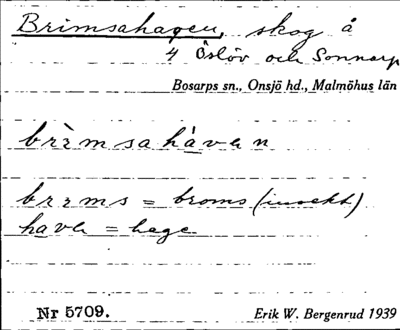 Brimsahagen, skog å
4 Öslöv och Sonnarp
Bosarps sn., Onsjö hd., Malmöhus län
brìmsahávan
brims = broms (insekt)
hava = hage
Nr 5709.
Erik W. Bergenrud 1939